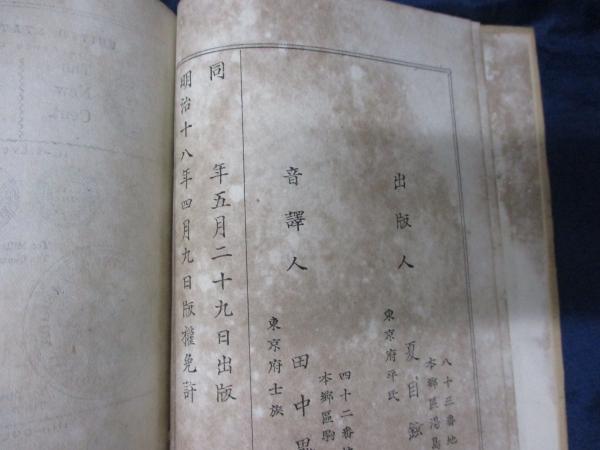 UNITED STAT
New
Cent.
明治十八年四月九日版權免許
同 年五月二十九日出版
音譯人
東京府士族
田中
本郷區駒
四十二番地
出版人
東京府平民
夏目
本郷區湯島
八十三番地